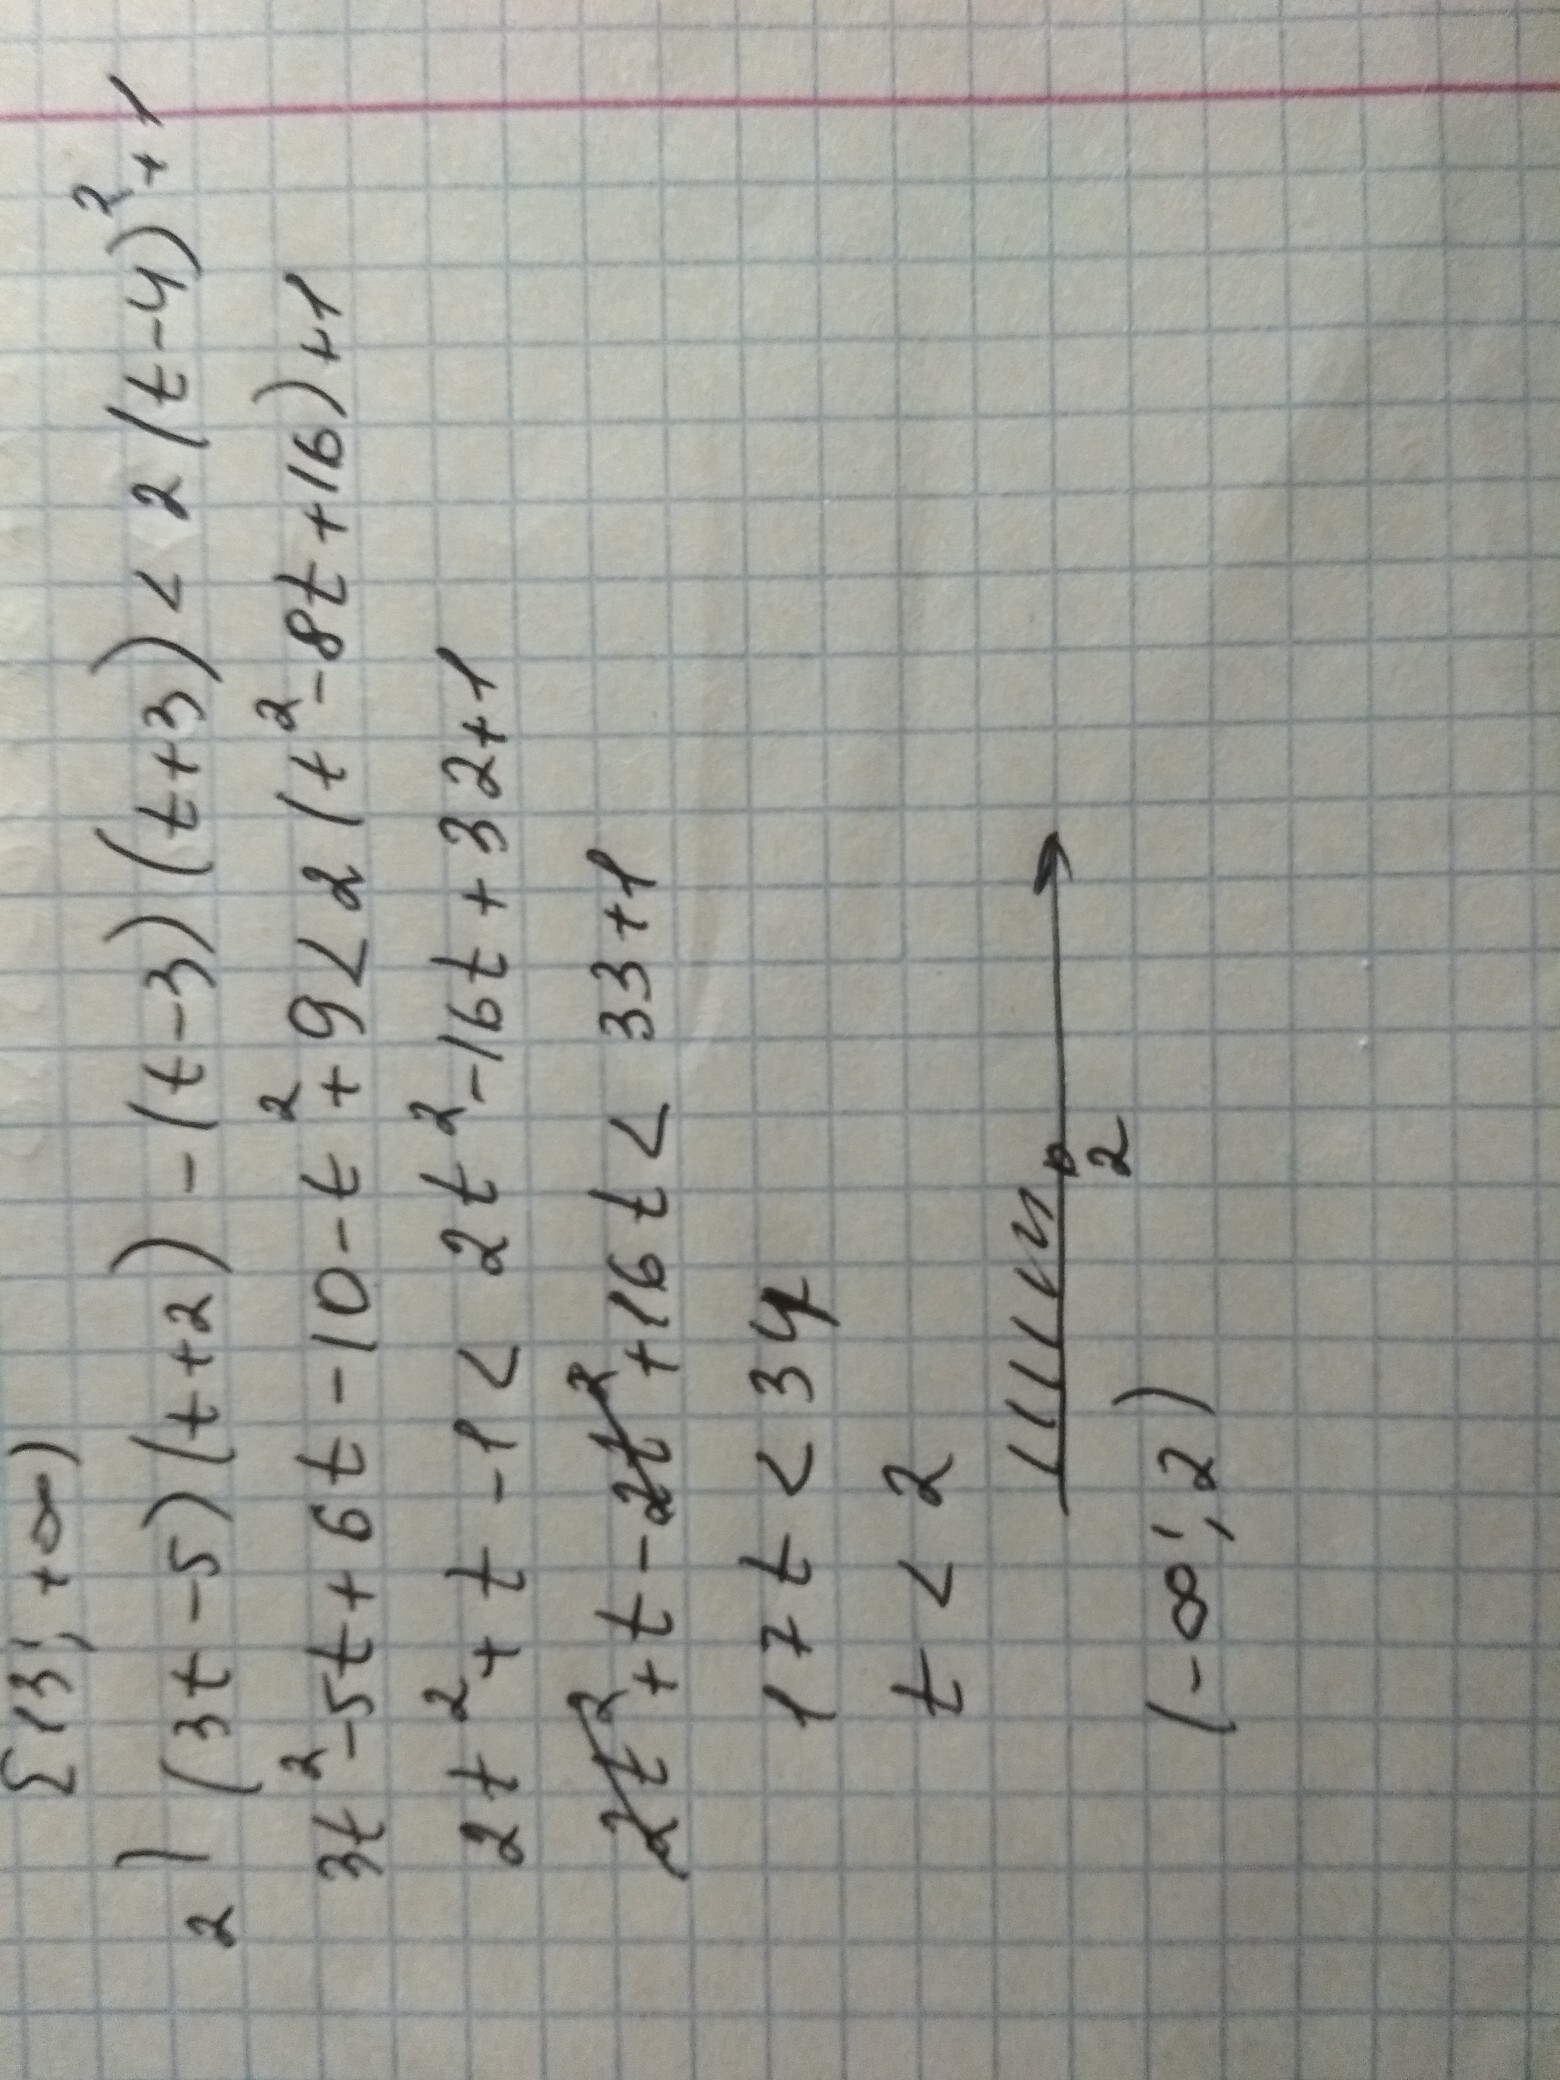 [13; +∞)
2) (3t-5)(t+2) - (t-3)(t+3) < 2(t-4)²+1
3t²-5t+6t-10-t²+9<2(t²-8t+16)+1
2t²+t-1< 2t²-16t+32+1
2t²+t-2t²+16t< 33+1
17t<34
t<2
2
(-∞; 2)